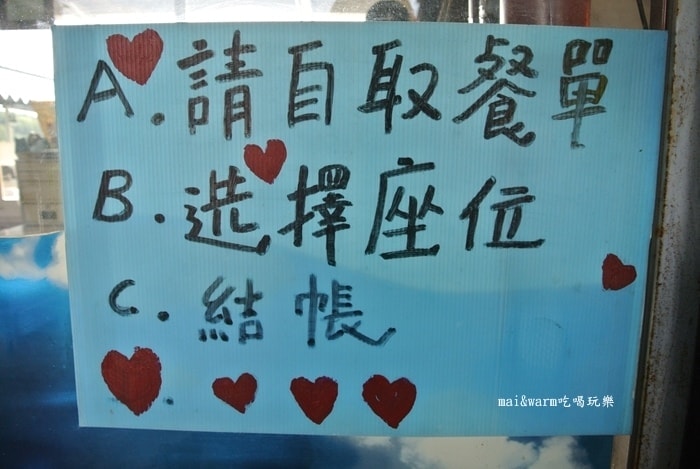 A.請自取餐單
B.選擇座位
C.結帳
mai&warm吃喝玩樂